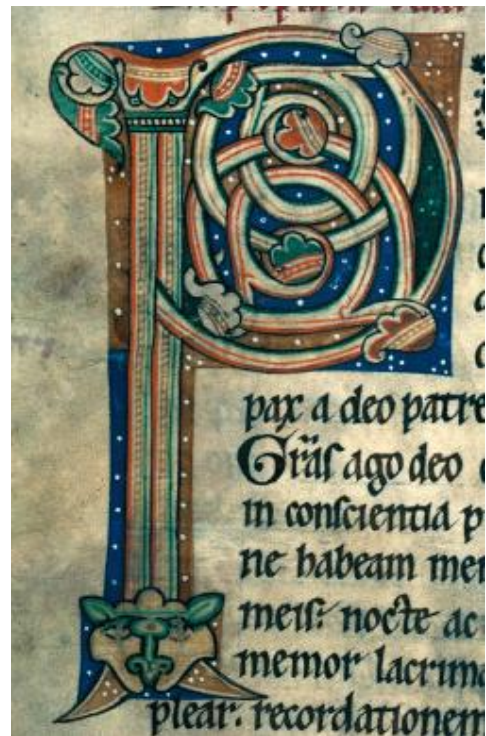 P
pax a deo patre
Gr̃as ago deo
in conscientia p
ne habeam mem
meis: nocte ac
memor lacrima
plear. recordationem